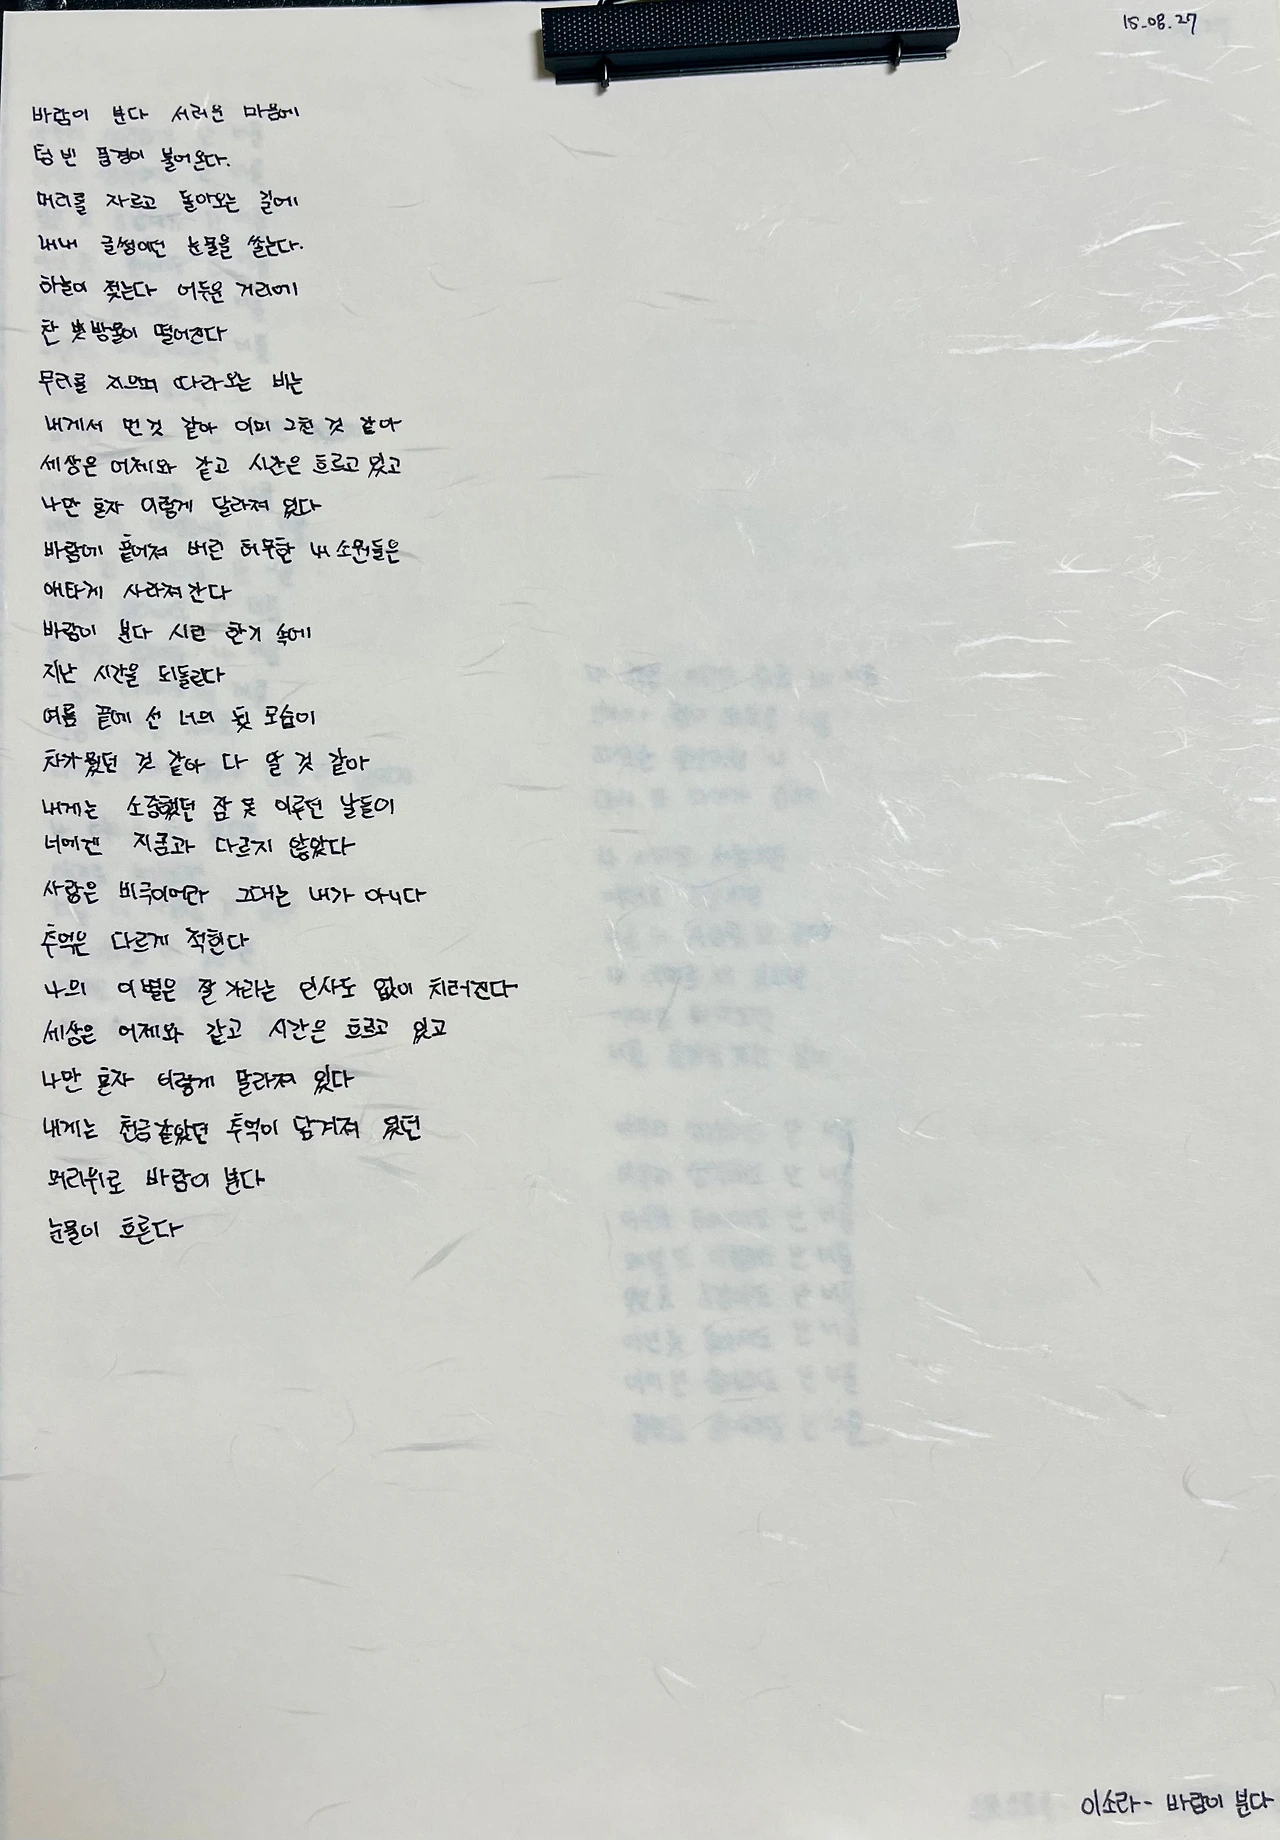 15.08.27
바람이 분다 서러운 마음에
텅 빈 풍경이 불어온다.
머리를 자르고 돌아오는 길에
내내 글썽이던 눈물을 쏟는다.
하늘이 젖는다 어두운 거리에
찬 빗방울이 떨어진다
무리를 지으며 따라오는 비는
내게서 먼것 같아 이미 그친 것 같아
세상은 어제와 같고 시간은 흐르고 있고
나만 혼자 이렇게 달라져 있다
바람에 흩어져 버린 허무한 내 소원들은
애타게 사라져간다
바람이 분다 시린 한기 속에
지난 시간을 되돌린다
여름 끝에 선 너의 뒷 모습이
차가웠던 것 같아 다 알 것 같아
내게는 소중했던 잠 못 이루던 날들이
너에겐 지금과 다르지 않았다
사랑은 비극이어라 그대는 내가 아니다
추억은 다르게 적힌다
나의 이별은 잘 가라는 인사도 없이 치러진다
세상은 어제와 같고 시간은 흐르고 있고
나만 혼자 이렇게 달라져 있다
내게는 천금같았던 추억이 담겨져 있던
머리위로 바람이 분다
눈물이 흐른다
이소라 - 바람이 분다